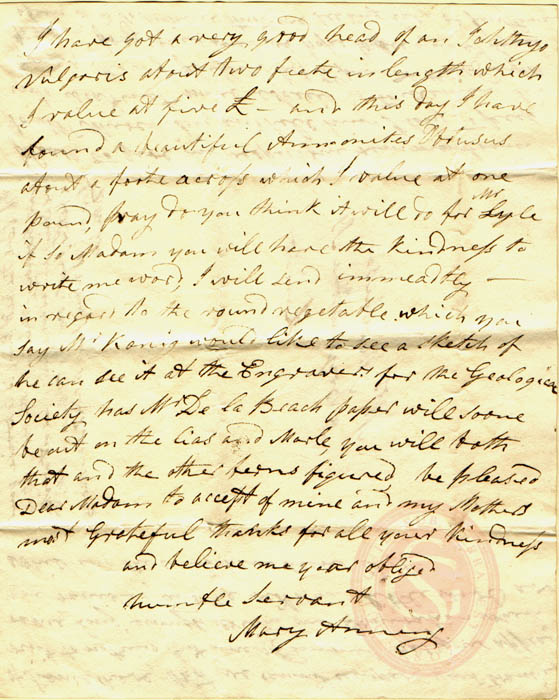 I have got a very good head of an Ichthyo
Vulgaris about two feete in length which
I value at five £ – and this day I have
found a beautiful Ammonites Obtusus
about a foote across which I value at one
pound, pray do you think it will do for Mr Lyle
if so Madam you will have the kindness to
write me word I will send immeadtly –
in regard to the round vegetable which you
say Mr Konig would like to see a sketch of
he can see it at the Engravers for the Geologica
Society has Mr De la Beach paper will soone
be out on the Lias and Marle, you will both
that and the other ferns figured be pleased
Dear Madam to accept of mine and my Mothers
most Grateful thanks for all your kindness
and believe me your obliged
humble Servant
Mary Anning